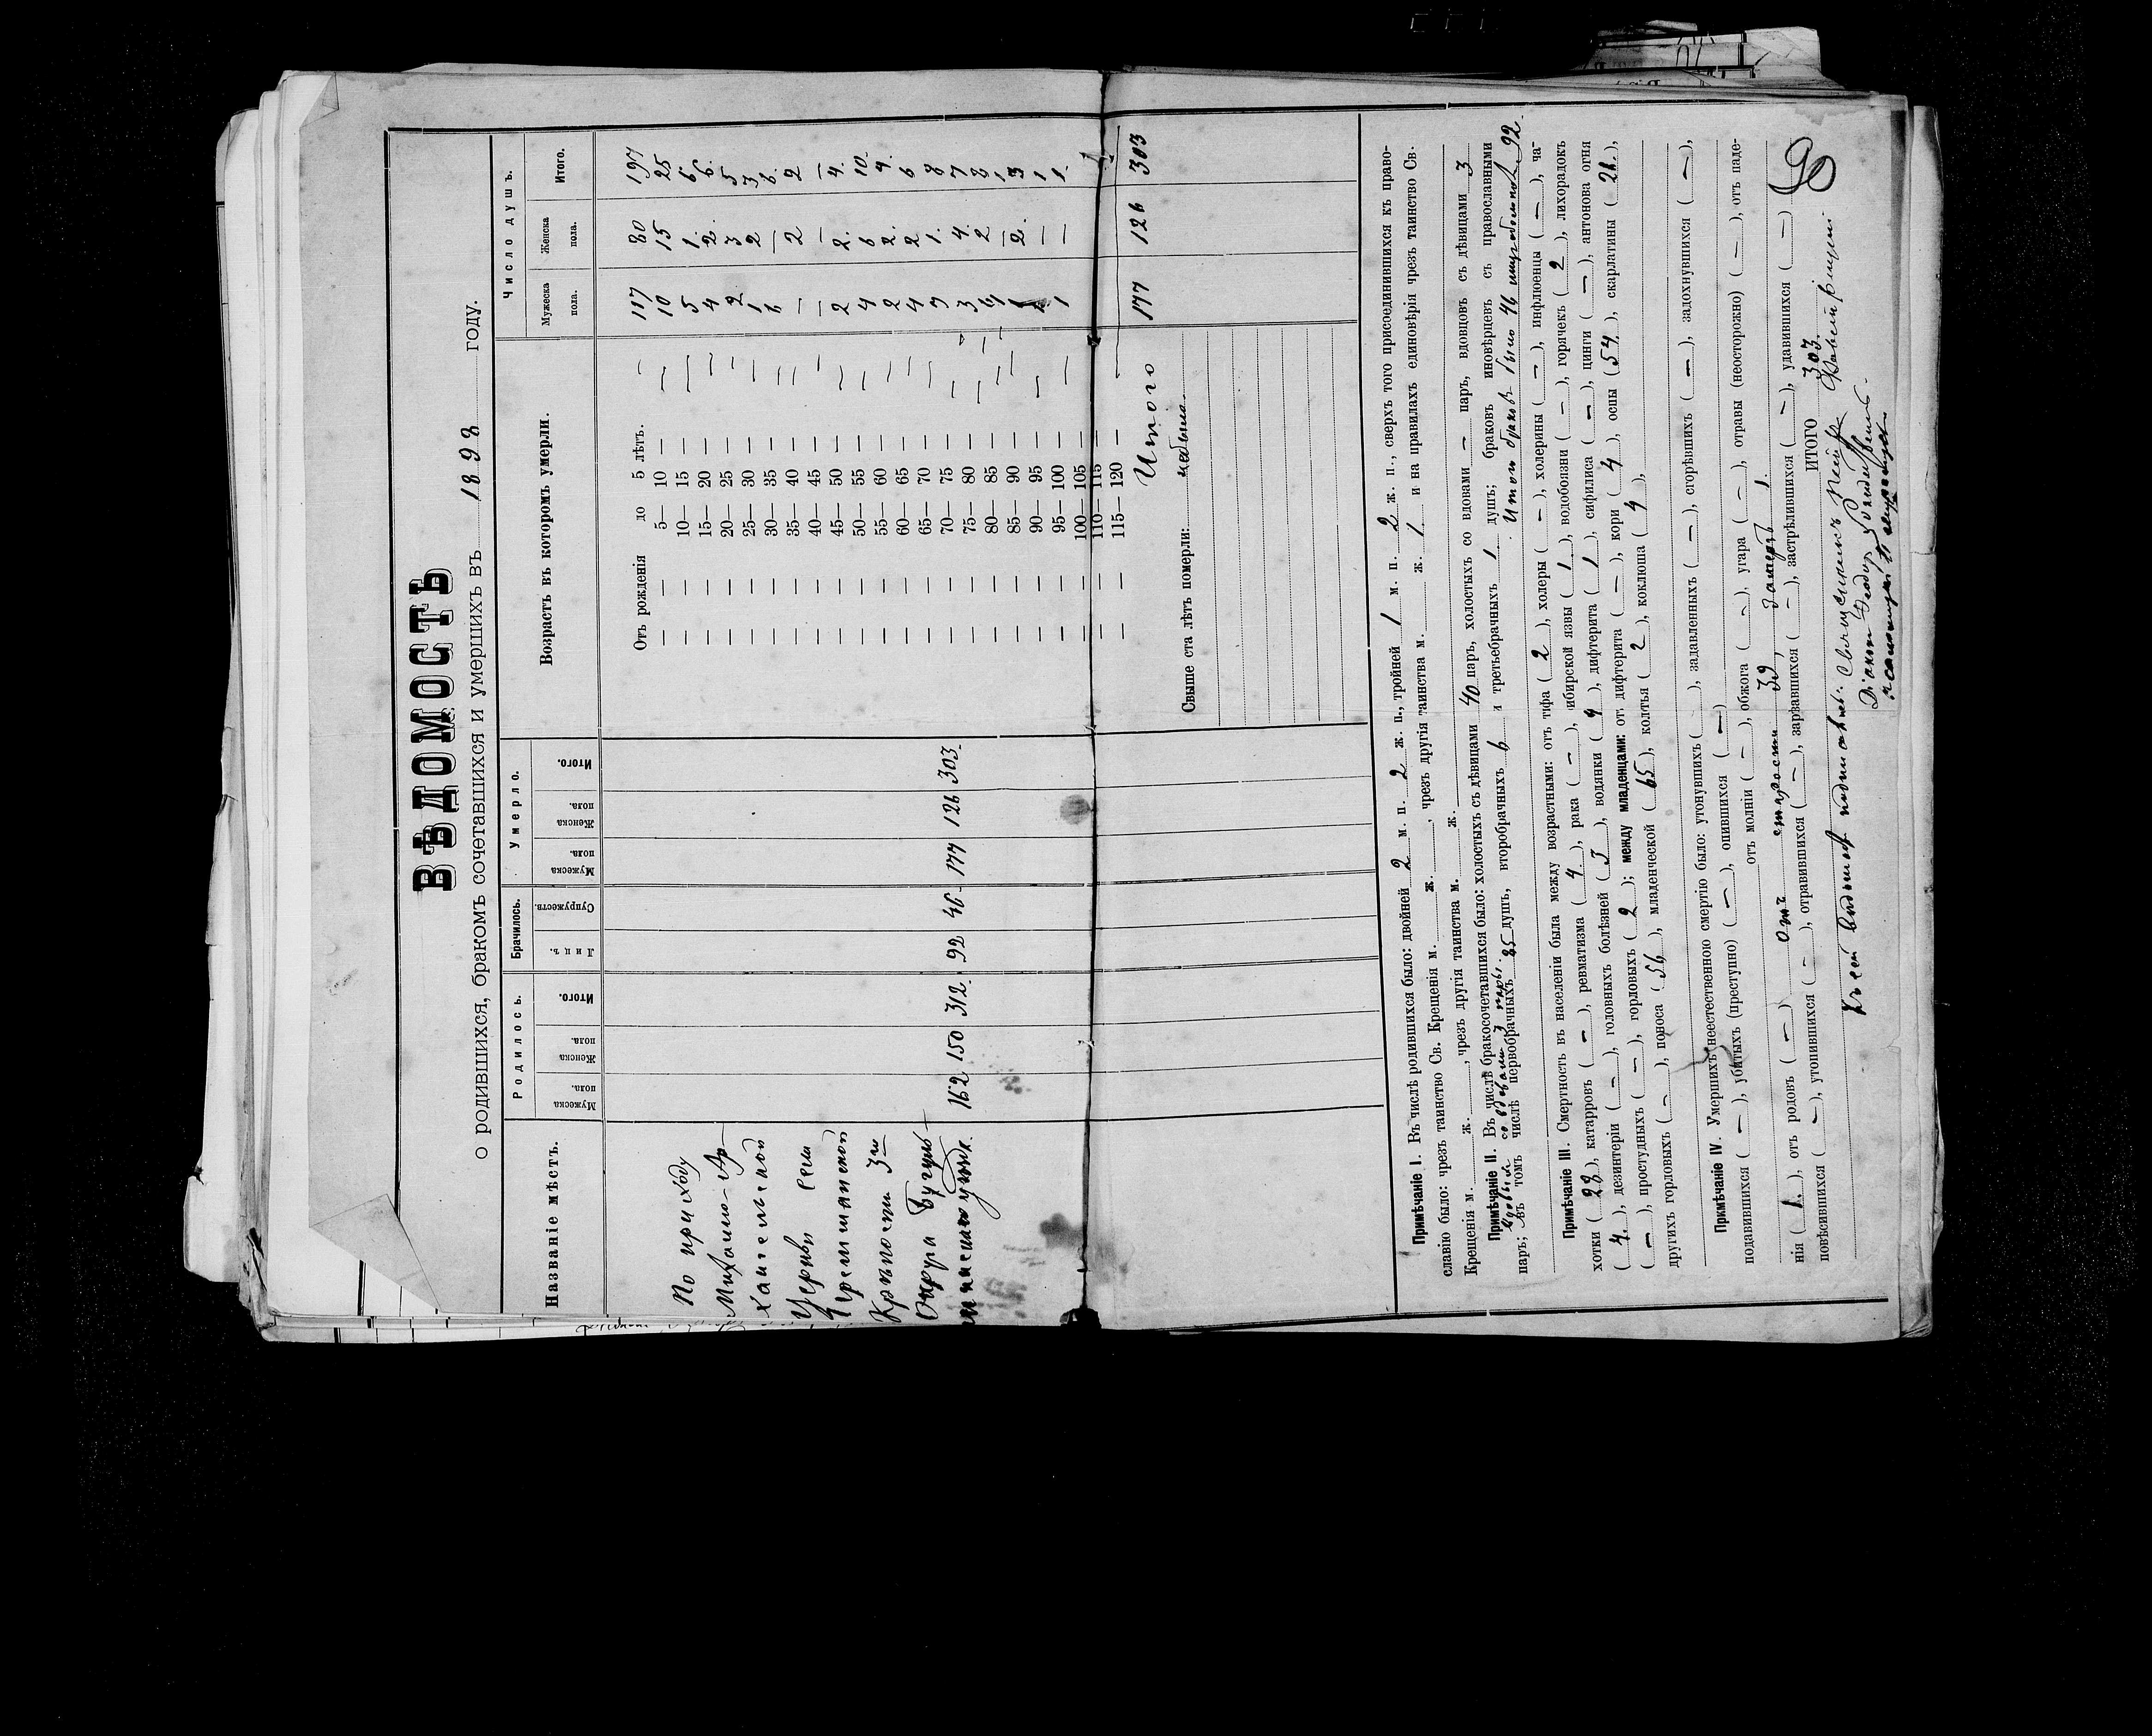 ВѢДОМОСТЬ
о родившихся, бракомъ сочетавшихся и умершихъ въ 1898 году.
Названіе мѣстъ.
Родилось.
Мужеска пола.
Женска пола.
Итого.
Брачилось.
Лицъ.
Супружествъ.
Умерло.
Мужеска пола.
Женска пола.
Итого.
Возрастъ въ которомъ умерли.
Число душъ.
Мужеска пола.
Женска пола.
Итого.
По приходу
Михаило-Ар-
хангельской
Церкви села
Черемшанской
Крѣпости 3го
Округа Бугуль-
минскаго уѣзда.
162 150 312 92 46 177 126 303
Отъ рожденія до 5 лѣтъ. 117 80 197
— — 5— 10 — 10 15 25
— — 10— 15 — 5 1 6
— — 15— 20 — 4 2 6
— — 20— 25 — 2 3 5
— — 25— 30 — 1 2 3
— — 30— 35 — 6 — 6
— — 35— 40 — — 2 2
— — 40— 45 — — — —
— — 45— 50 — 2 2 4
— — 50— 55 — 4 6 10
— — 55— 60 — 2 2 4
— — 60— 65 — 4 2 6
— — 65— 70 — 7 1 8
— — 70— 75 — 3 4 7
— — 75— 80 —
— — 80— 85 —
— — 85— 90 —
— — 90— 95 —
— — 95— 100 —
— — 100— 105 —
— — 110— 115 —
— — 115— 120 —
Итого 177 126 303
Свыше ста лѣтъ померли: небыло.
Примѣчаніе I. Въ числѣ родившихся было: двойней 2 м. п. 2 ж. п., тройней 1 м. п. 2 ж. п., сверхъ того присоединившихся къ право-
славію было: чрезъ таинство Св. Крещенія м. ж. , чрезъ другія таинства м. ж. 1 и на правилахъ единовѣрія чрезъ таинство Св.
Крещенія м. ж. , чрезъ другія таинства м. ж.
Примѣчаніе II. Въ числѣ бракосочетавшихся было: холостыхъ съ дѣвицами 40 паръ, холостыхъ со вдовами — паръ, вдовцовъ съ дѣвицами 3
паръ; вдовыхъ со вдовами 3 пары. въ томъ числѣ первобрачныхъ 85 душъ, второбрачныхъ 6 и третьебрачныхъ 1 душъ; браковъ иновѣрцевъ съ православными
Итого браковъ было 46 92.
Примѣчаніе III. Смертность въ населеніи была между возрастными: отъ тифа ( 2 ), холеры ( — ), холерины ( — ), инфлюенцы ( — ), ча-
хотки ( 28 ), катарровъ ( — ), ревматизма ( 4 ), рака ( — ), сибирской язвы ( 1 ), водобоязни ( — ), горячекъ ( 2 ), лихорадокъ
( 4. ), дезинтеріи ( — ), головныхъ болѣзней ( 3 ), водянки ( 9 ), дифтерита ( 1 ), сифилиса ( — ), цинги ( — ), антонова огня
( — ), простудныхъ ( — ), горловыхъ ( 2 ); между младенцами: отъ дифтерита ( — ), кори ( 4 ), оспы ( 54. ), скарлатины ( 21. ),
другихъ горловыхъ ( — ), поноса ( 56 ), младенческой ( 65 ), колотья ( 2 ), коклюша ( 4 ),
Примѣчаніе IV. Умершихъ неестественною смертію было: утонувшихъ ( ), задавленныхъ ( — ), сгорѣвшихъ ( — ), задохнувшихся ( — ),
подавившихся ( — ), убитыхъ (преступно) ( — ), опившихся ( — )
отъ молніи ( — ), обжога ( — ), угара ( — ), отравы (неосторожно) ( — ), отъ паде-
нія ( 1. ), отъ родовъ ( — ) отъ старости 39, 1.
повѣсившихся ( — ), утопившихся ( — ), отравившихся ( — ), зарѣзавшихся ( — ), застрѣлившихся ( — ), удавившихся ( — )
ИТОГО 303.
Къ сей подписались: Священникъ
Діаконъ Ѳеодоръ
90